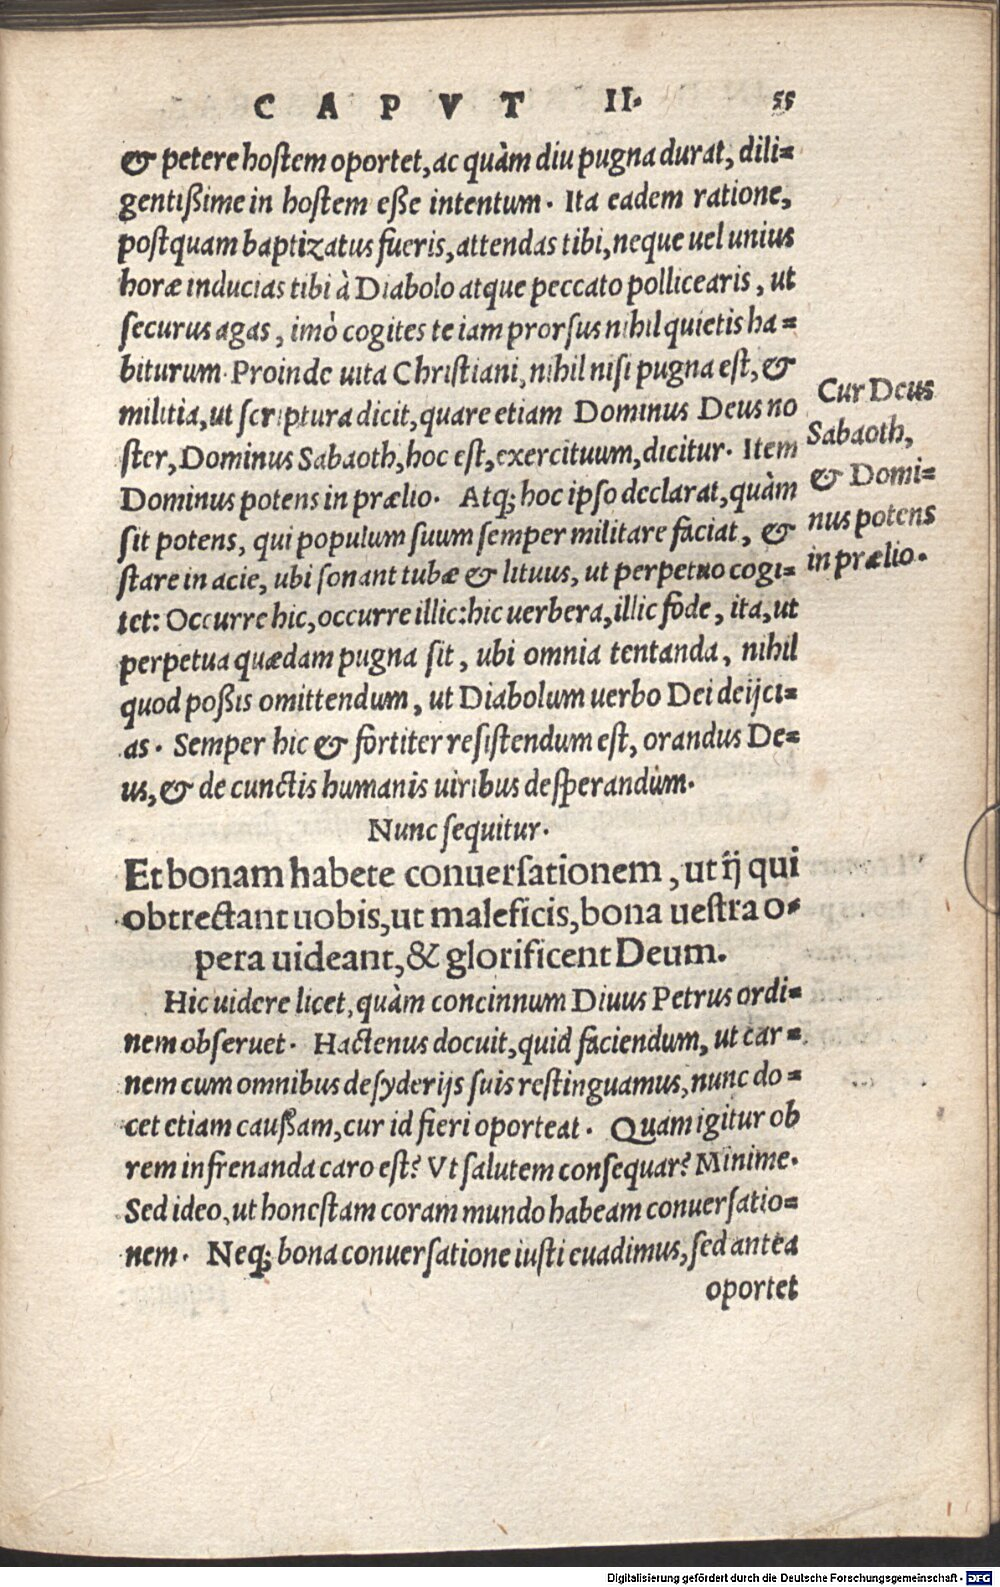 CAPVT II. 55
& petere hostem oportet, ac quàm diu pugna durat, dili=
gentißime in hostem eße intentum. Ita eadem ratione,
postquam baptizatus fueris, attendas tibi, neque uel unius
horæ inducias tibi à Diabolo atque peccato pollicearis, ut
securus agas, imò cogites te iam prorsus nihil quietis ha=
biturum. Proinde uita Christiani, nihil nisi pugna est, &
militia, ut scriptura dicit, quare etiam Dominus Deus no
ster, Dominus Sabaoth, hoc est, exercituum, dicitur. Item
Dominus potens in prælio. Atq; hoc ipso declarat, quàm
sit potens, qui populum suum semper militare faciat, &
stare in acie, ubi sonant tubæ & lituus, ut perpetuo cogi=
tet: Occurre hic, occurre illic: hic uerbera, illic fode, ita, ut
perpetua quædam pugna sit, ubi omnia tentanda, nihil
quod poßis omittendum, ut Diabolum uerbo Dei deijci=
as. Semper hic & fortiter resistendum est, orandus De=
us, & de cunctis humanis uiribus desperandum.
Cur Deus
Sabaoth,
& Domi=
nus potens
in prælio.
Nunc sequitur.
Et bonam habete conuersationem, ut ij qui
obtrectant uobis, ut maleficis, bona uestra o=
pera uideant, & glorificent Deum.
Hic uidere licet, quàm concinnum Diuus Petrus ordi=
nem obseruet. Hactenus docuit, quid faciendum, ut car=
nem cum omnibus desyderijs suis restinguamus, nunc do=
cet etiam caußam, cur id fieri oporteat. Quam igitur ob
rem infrenanda caro est? Vt salutem consequar? Minime.
Sed ideo, ut honestam coram mundo habeam conuersatio=
nem. Neq; bona conuersatione iusti euadimus, sed antea
oportet
Digitalisierung gefördert durch die Deutsche Forschungsgemeinschaft - DFG